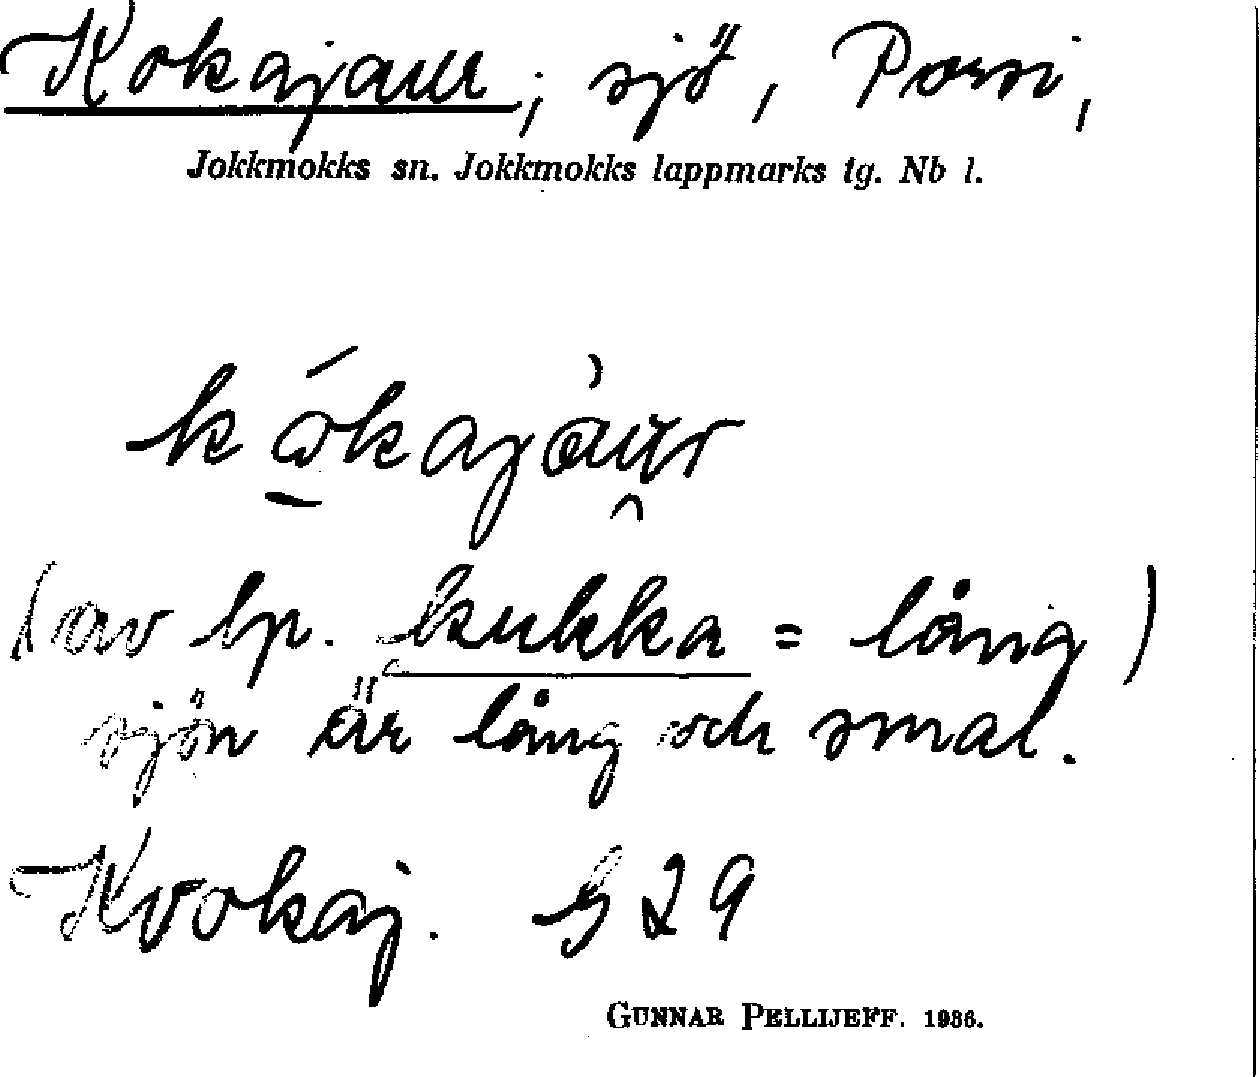 Kokajaur, sjö, Porsi,
Jokkmokks sn. Jokkmokks lappmarks tg. Nb l.
kó̱kajàu̯r
(av lp. kukka = lång)
sjön är lång och smal.
Kvokaj. G 29
GUNNAR PELLIJEFF. 1936.